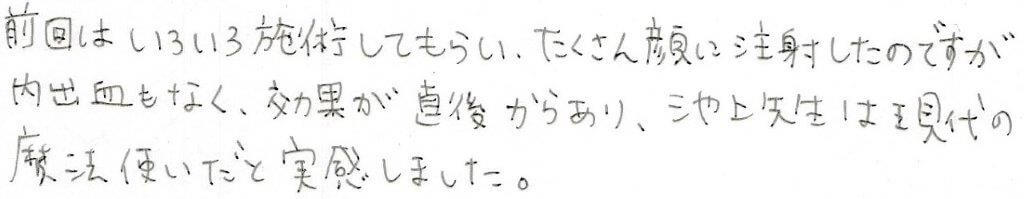 前回はいろいろ施術してもらい、たくさん顔に注射したのですが
内出血もなく、効果が直後からあり、池上先生は現代の
魔法使いだと実感しました。